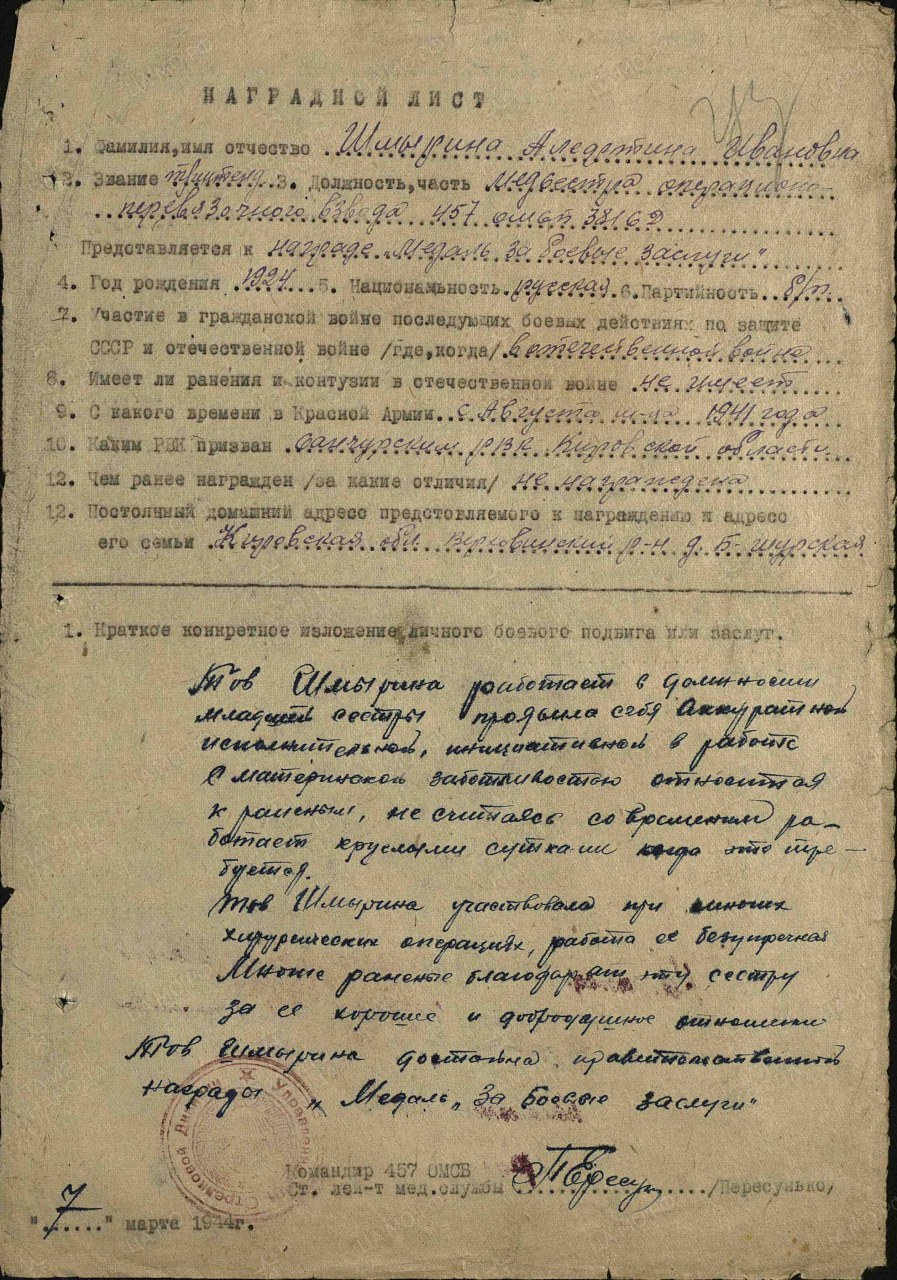 НАГРАДНОЙ ЛИСТ
1. Фамилия, имя отчество Шмырина Алефтина Ивановна
2. Звание 3. Должность, часть медсестра операционо-
перевязочного взвода 457 омсп 38162
Представляется к награде „Медаль за боевые заслуги"
4. Год рождения 1924 5. Национальность русская 6. Партийность б/п.
7. Участие в гражданской войне последующих боевых действиях по защите
СССР и отечественной войне /где, когда/ в отечественной войне
8. Имеет ли ранения и контузии в отечественной войне не имеет
9. С какого времени в Красной Армии с Августа м-ца 1941 года
10. Каким РВК призван Санчурским РВК Кировской области
12. Чем ранее награжден /за какие отличия/ не награждена
12. Постоянный домашний адресс предстовляемого к награждению и адресс
его семьи Кировская обл. р-н д. Б-шурская
1. Краткое конкретное изложение личного боевого подвига или заслуг.
Тов Шмырина работает в должности
младшей сестры проявила себя Аккуратной
исполнительной, инициативной в работе
С материнской заботливостью относится
к раненым, не считаясь со временем ра-
ботает круглыми сутками когда это тре-
буется.
Тов Шмырина участвовала при многих
хирургических операциях, работа ее безупречная
Многие раненые благодарят эту сестру
за ее хорошие и добродушное отношение
Тов Шмырина достойна правительственной
награды „Медаль„ За Боевые заслуги"
Управление Стрелковой
Командир 457 ОМСБ
Ст. лей-т мед. службы /Пересунько/
"7" марта 1944г.